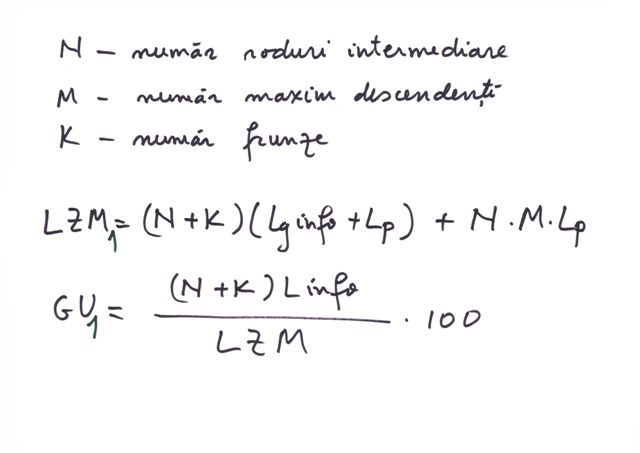 N - număr noduri intermediare
M - număr maxim descendenți
K - număr frunze
LZM₁ = (N+K)(Lg info + Lp) + N.M.Lp
GU₁ = (N+K) L info / LZM . 100